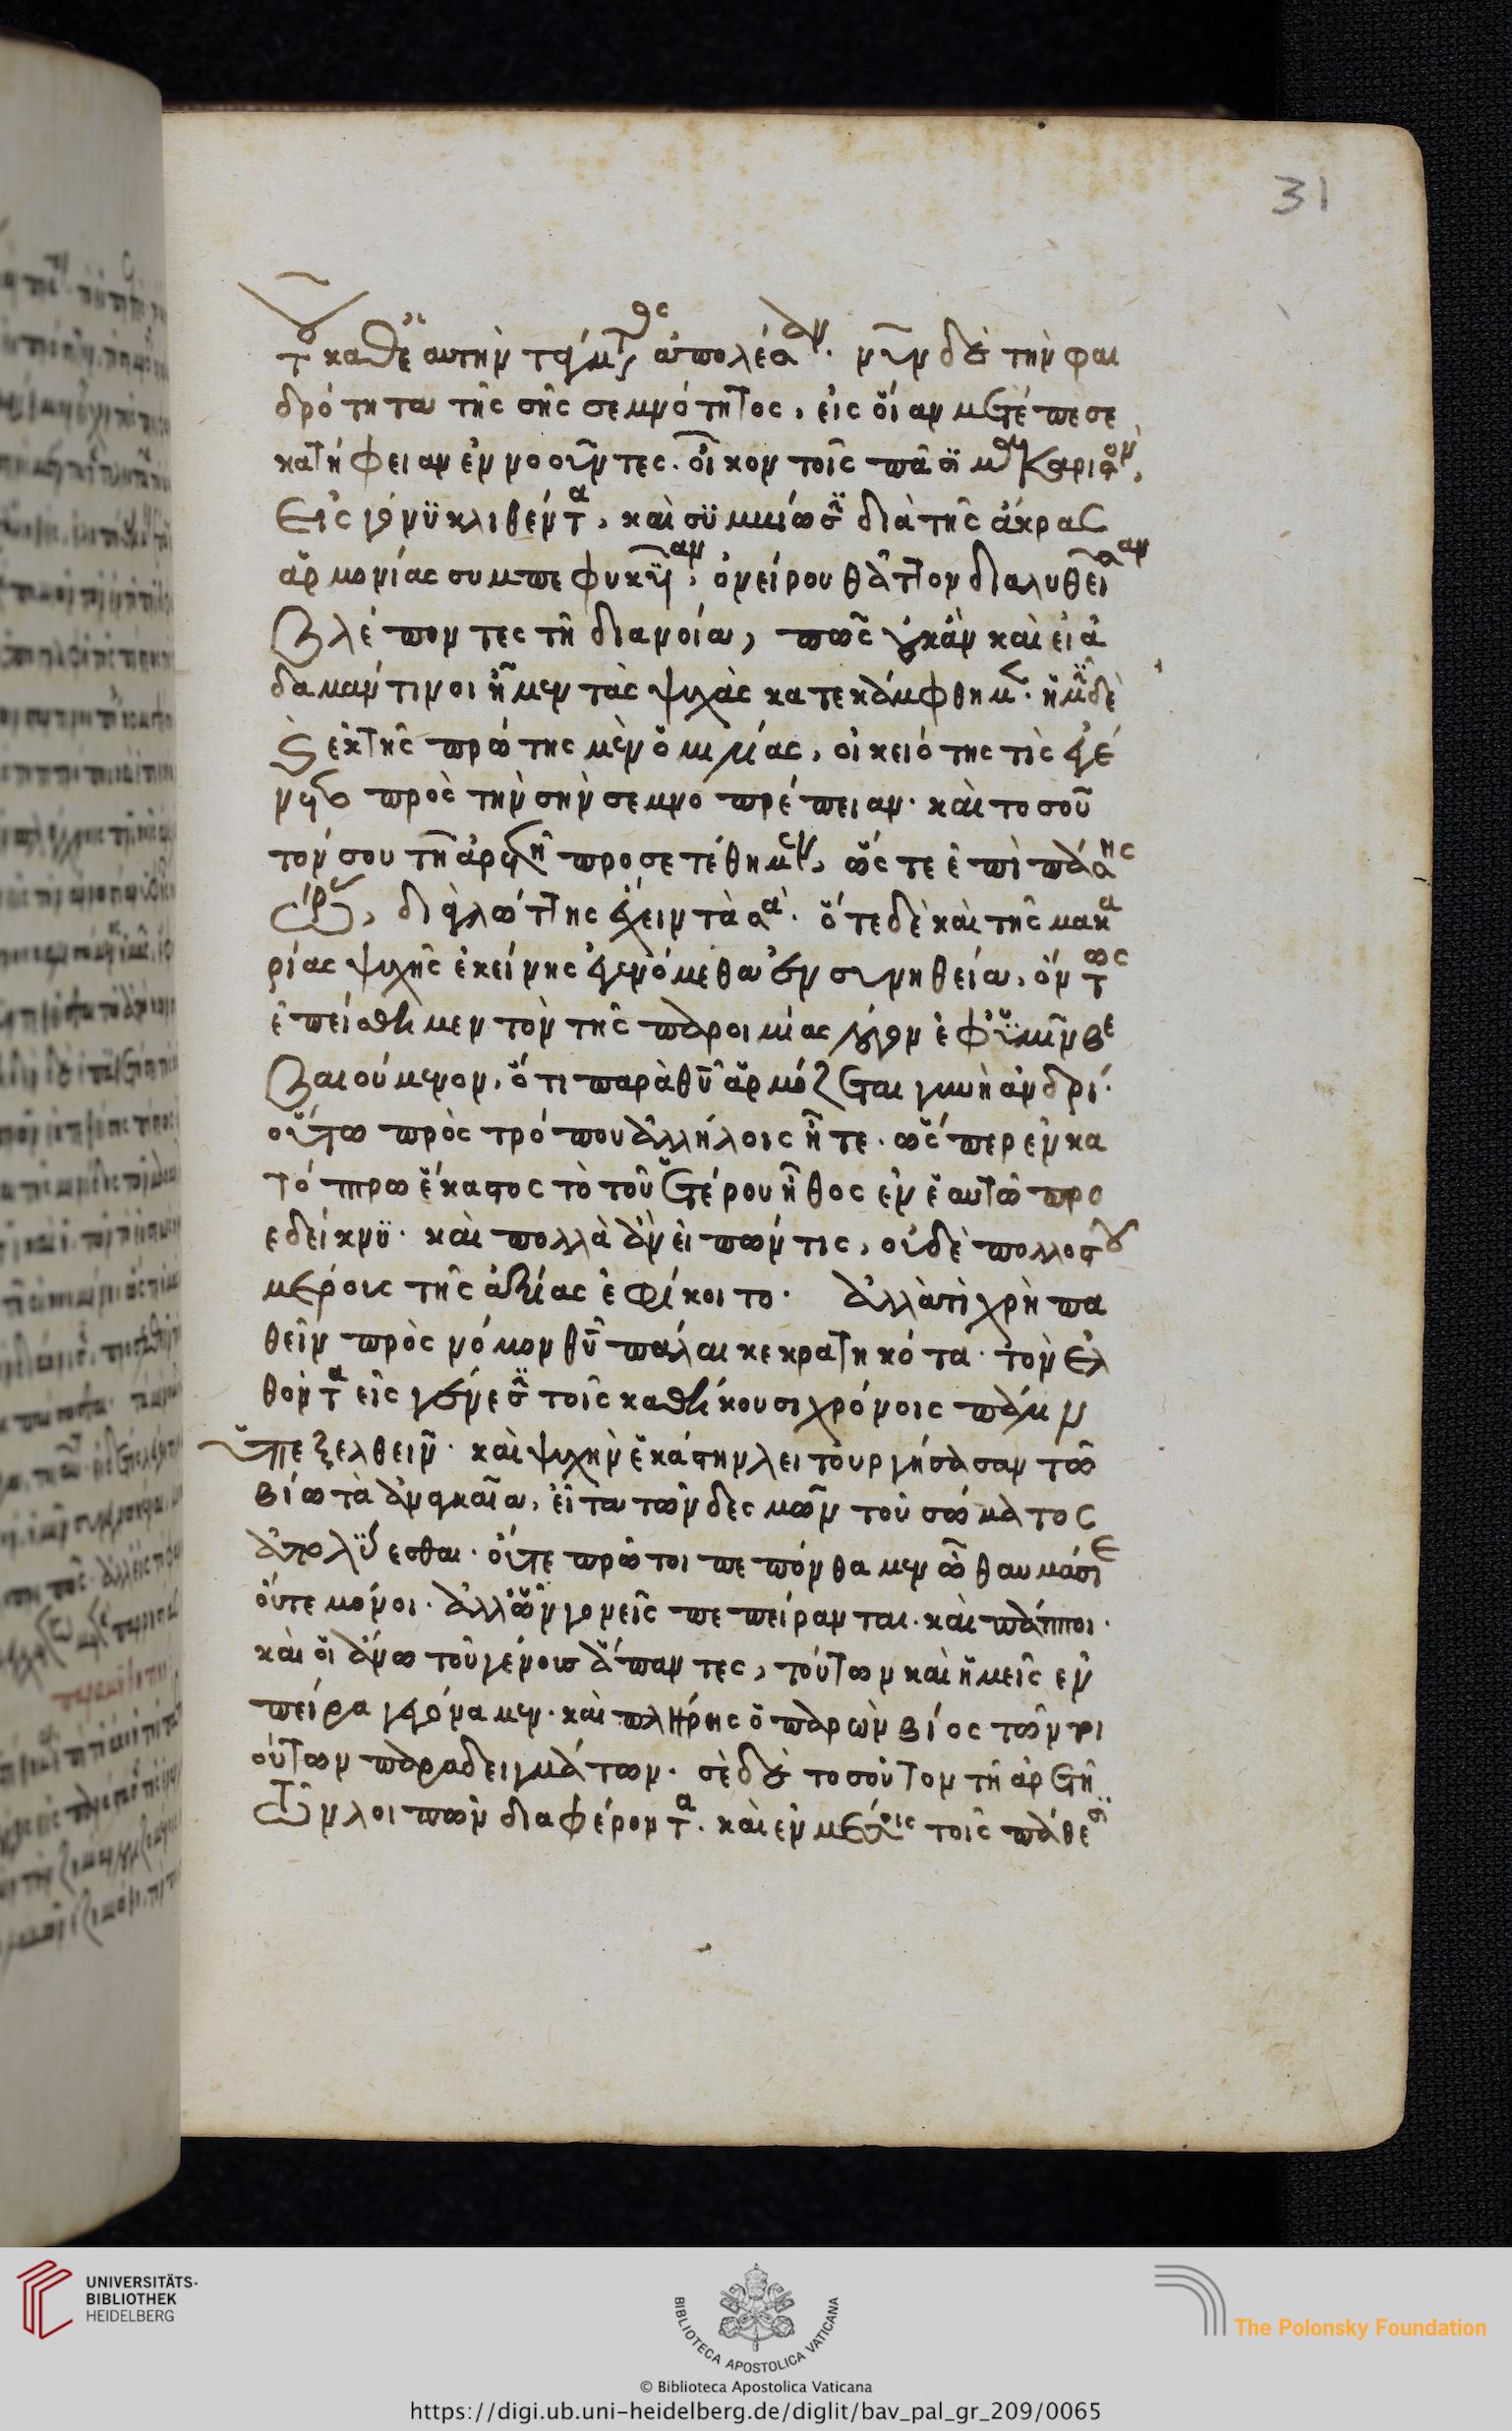 31
τοῦ καθ' ἑαυτὴν τάγματος ἀπολέσασαν. νῦν δὲ τὴν φαι
δρότητα τῆς σῆς σεμνότητος, εἰς οἵαν μετέπεσε
κατήφειαν ἐννοοῦντες. οἶκον τοῖς πᾶσι μακαριστὸν,
εἰς γόνυ κλιθέντα, καὶ συμβίωσιν διὰ τῆς ἄκρας
ἁρμονίας συμπεφυκυῖαν, ὀνείρου θᾶττον διαλυθεῖσαν
βλέποντες τῇ διανοίᾳ, πῶς οὐκ ἂν καὶ εἰ ἀ
δαμάντινοι ἦμεν τὰς ψυχὰς κατεκάμφθημεν. ἡμῖν δὲ
καὶ ἐκ τῆς πρώτης μὲν ὁμιλίας, οἰκειότης τὶς ἐγέ
νετο πρὸς τὴν σὴν σεμνοπρέπειαν. καὶ τοσοῦ
τόν σου τῇ ἀρετῇ προσετέθημεν, ὥς τε ἐπὶ πάσης
ὥρας, διὰ γλώττης ἔχειν τὰ σά. ὅτε δὲ καὶ τῆς μακα
ρίας ψυχῆς ἐκείνης ἐγενόμεθα ἐν συνηθείᾳ, ὄντως
ἐπείσθημεν τὸν τῆς παροιμίας λόγον ἐφ' ὑμῖν βε
βαιούμενον, ὅτι παρὰ θεοῦ ἁρμόζεται γυνὴ ἀνδρί.
οὕτω πρὸς τρόπου ἀλλήλοις ἦτε. ὥσπερ ἐν κα
τόπτρῳ ἕκαστος τὸ τοῦ ἑτέρου ἦθος ἐν ἑαυτῷ προ
εδείκνυ. καὶ πολλὰ ἂν εἰπών τις, οὐδὲ πολλοστοῦ
μέρους τῆς ἀξίας ἐφίκοιτο. ἀλλὰ τί χρὴ πα
θεῖν πρὸς νόμον θεοῦ πάλαι κεκρατηκότα. τὸν ἐλ
θόντα εἰς γένεσιν τοῖς καθήκουσι χρόνοις πάλιν
ὑπεξελθεῖν. καὶ ψυχὴν ἑκάστην λειτουργήσασαν τῷ
βίῳ τὰ ἀναγκαῖα, εἶτα τῶν δεσμῶν τοῦ σώματος
ἀπολύεσθαι. οὔτε πρῶτοι πεπόνθαμεν ὦ θαυμάσιε
οὔτε μόνοι. ἀλλ' ὧν γονεῖς πεπείρανται. καὶ πάπποι.
καὶ οἱ ἄνω τοῦ γένους ἅπαντες, τούτων καὶ ἡμεῖς ἐν
πείρᾳ γεγόναμεν. καὶ πλήρης ὁ παρὼν βίος τῶν τοι
ούτων παραδειγμάτων. σὲ δὲ τοσοῦτον τῇ ἀρετῇ
τῶν λοιπῶν διαφέροντα. καὶ ἐν μέσοις τοῖς πάθεσι
UNIVERSITÄTS-
BIBLIOTHEK
HEIDELBERG
BIBLIOTECA APOSTOLICA VATICANA
The Polonsky Foundation
© Biblioteca Apostolica Vaticana
https://digi.ub.uni-heidelberg.de/diglit/bav_pal_gr_209/0065